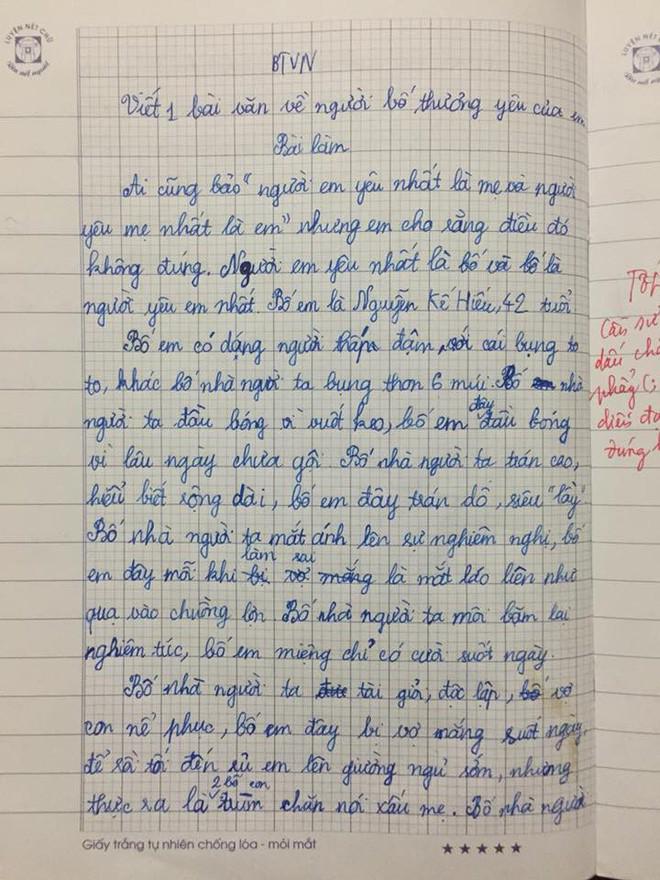 LUYỆN NÉT CHỮ
Rèn nết người
BTVN
Viết 1 bài văn về người bố thương yêu của em
Bài làm
Ai cũng bảo "người em yêu nhất là mẹ và người
yêu mẹ nhất là em" nhưng em cho rằng điều đó
không đúng. Người em yêu nhất là bố và bố là
người yêu em nhất. Bố em là Nguyễn Kế Hiếu, 42 tuổi
Bố em có dáng người thấp đậm, với cái bụng to
to, khác bố nhà người ta bụng thon 6 múi. Bố nhà
người ta đầu bóng vì vuốt keo, bố em đây đầu bóng
vì lâu ngày chưa gội. Bố nhà người ta trán cao,
hiểu biết rộng dài, bố em đây trán dô, siêu "lầy"
Bố nhà người ta mắt ánh lên sự nghiêm nghị, bố
em đây mỗi khi làm sai là mắt láo liên như
quạ vào chuồng lợn. Bố nhà người ta môi bặm lại
nghiêm túc, bố em miệng chỉ có cười suốt ngày.
Bố nhà người ta tài giỏi, độc lập, vợ
con nể phục, bố em đây bị vợ mắng suốt ngày,
để rồi tối đến rủ em lên giường ngủ sớm, nhưng
thực ra là 2 bố con trùm chăn nói xấu mẹ. Bố nhà người
Giấy trắng tự nhiên chống lóa - mỏi mắt
★★★★★
LUYỆN NÉT
Rèn nết
Cần sử
dấu
diễn đạ
đúng